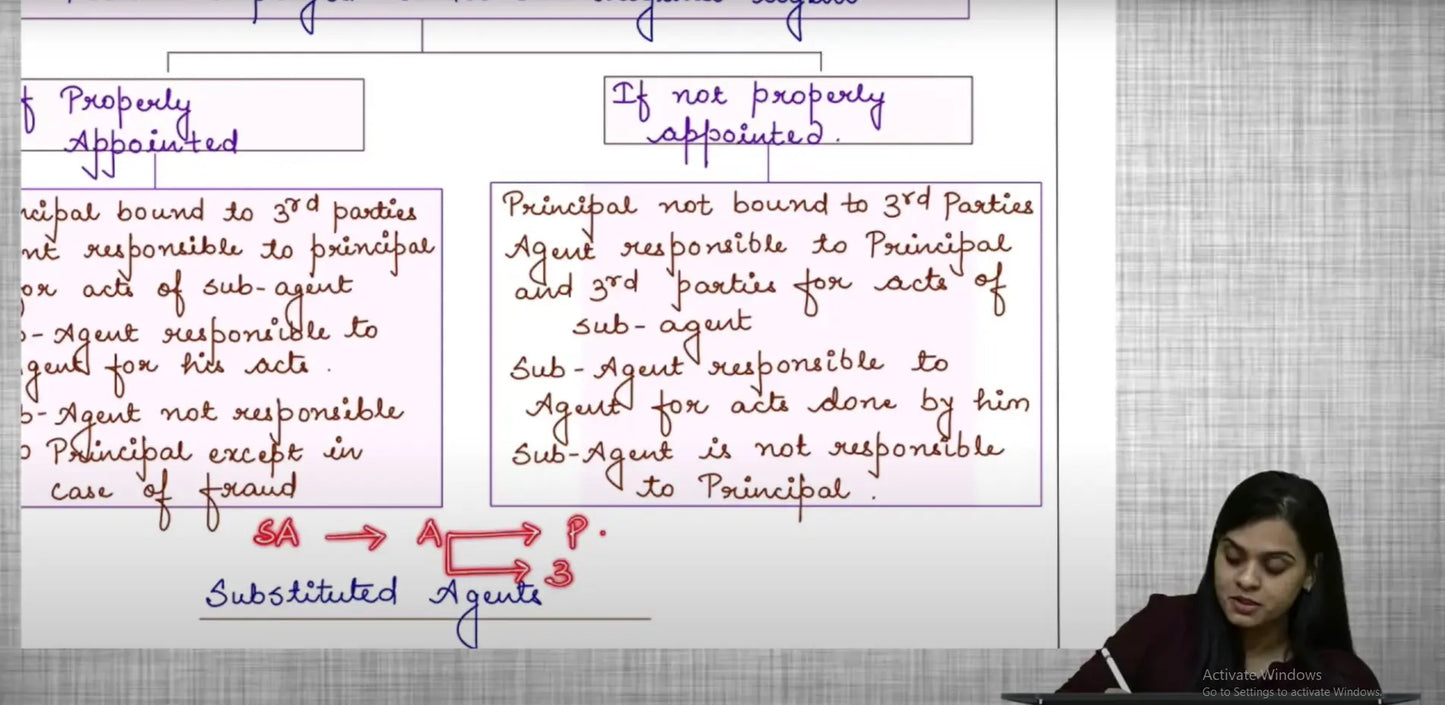 Properly
Appointed
If not properly
appointed.
bound to 3rd parties
responsible to principal
acts of sub-agent
Agent responsible to
for his acts.
Agent not responsible
Principal except in
case of fraud
Principal not bound to 3rd Parties
Agent responsible to Principal
and 3rd parties for acts of
sub-agent
Sub-Agent responsible to
Agent for acts done by him
Sub-Agent is not responsible
to Principal.
SA → A → P.
→ 3
Substituted Agents
Activate Windows
Go to Settings to activate Windows.